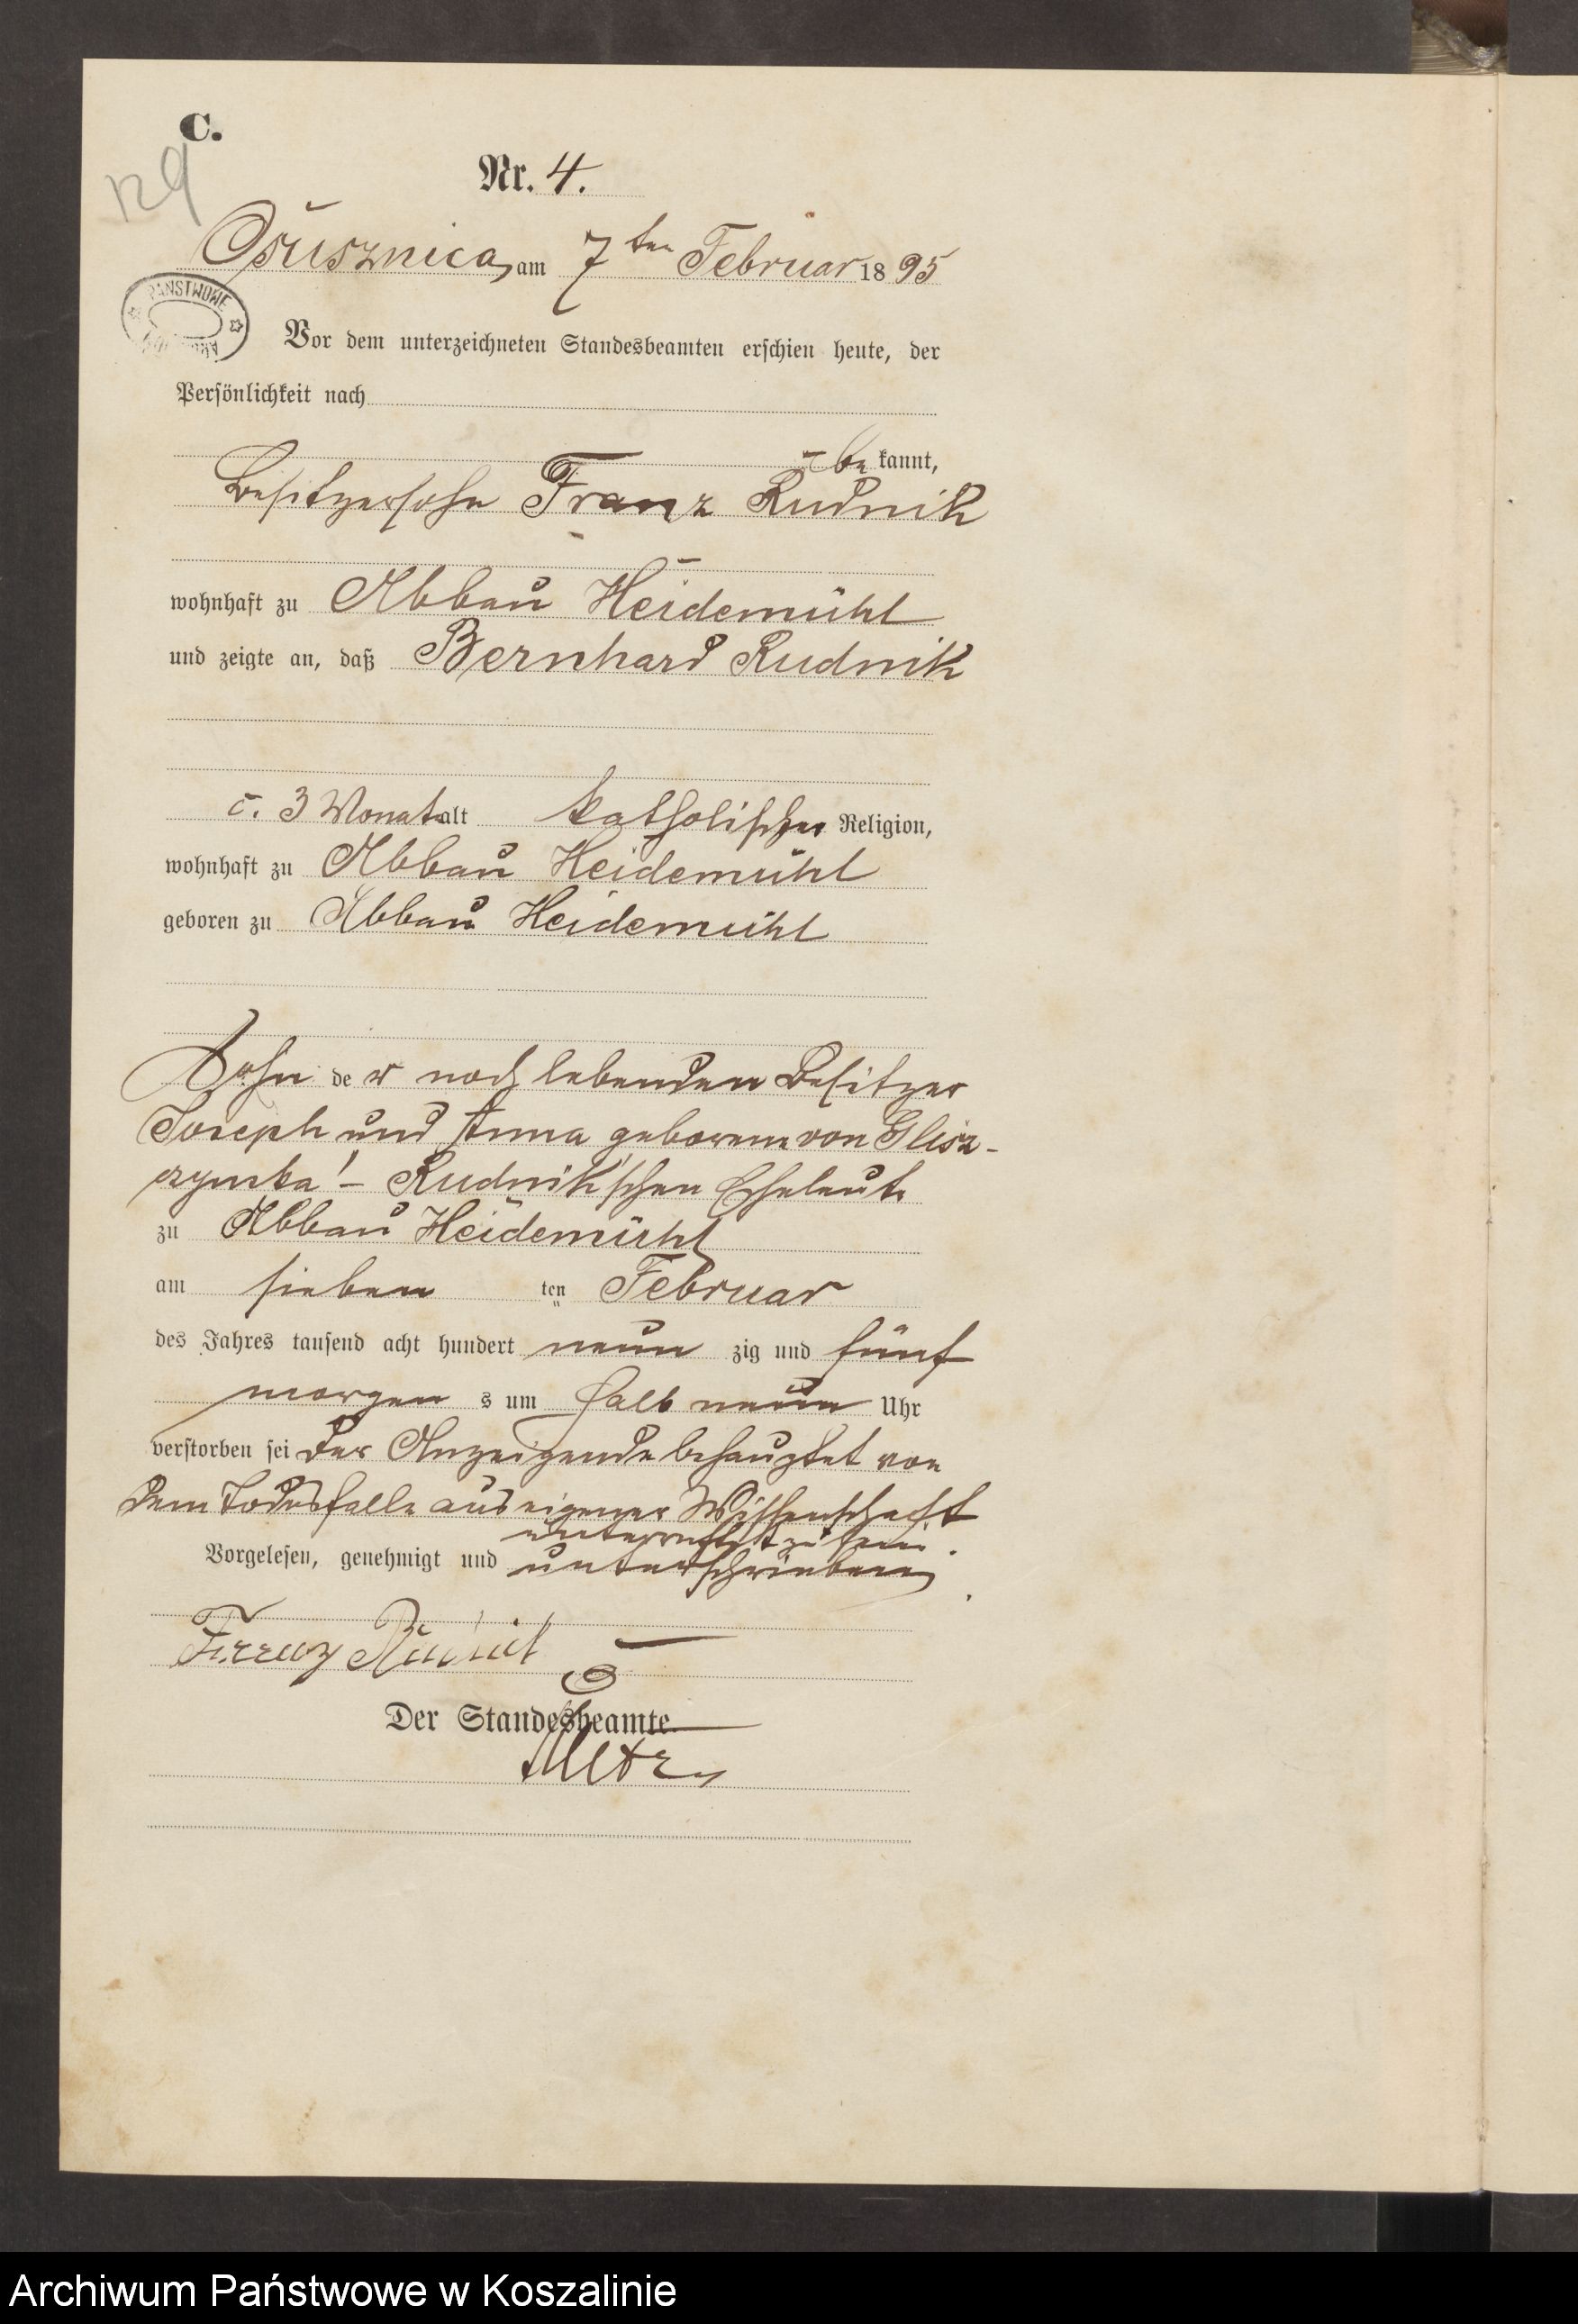 C.
129
Nr. 4.
Osusznica, am 7ten Februar 1895
PAŃSTWOWE
Vor dem unterzeichneten Standesbeamten erschien heute, der
Persönlichkeit nach
be kannt,
Besitzersohn Franz Rudnik
wohnhaft zu Abbau Heidemühl
und zeigte an, daß Bernhard Rudnik
c. 3 Monate alt katholischer Religion,
wohnhaft zu Abbau Heidemühl
geboren zu Abbau Heidemühl
Sohn de r noch lebenden Besitzer
Joseph und Anna geborene von Glisz-
czynska' - Rudnik'schen Eheleute
zu Abbau Heidemühl
am sieben ten Februar
des Jahres tausend acht hundert neun zig und fünf
morgen s um halb neun Uhr
verstorben sei Der Anzeigende behauptet von
dem Todesfalle aus eigener Wissenschaft
unterrichtet zu sein.
Vorgelesen, genehmigt und unterschrieben
Franz Rudnik
Der Standesbeamte.
Archiwum Państwowe w Koszalinie